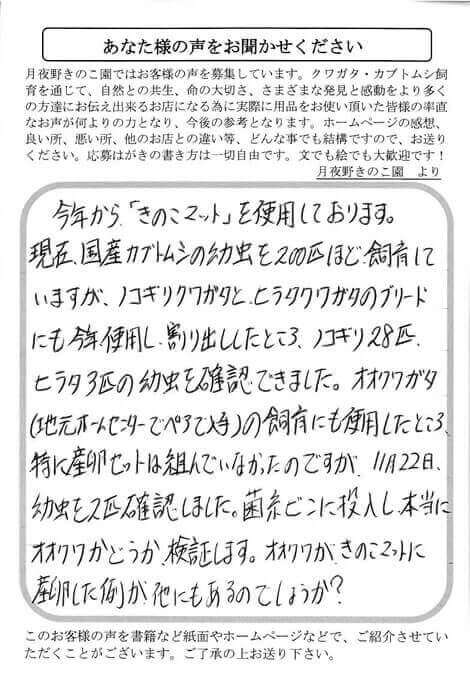 あなた様の声をお聞かせください
月夜野きのこ園ではお客様の声を募集しています。クワガタ・カブトムシ飼
育を通じて、自然との共生、命の大切さ、さまざまな発見と感動をより多く
の方達にお伝え出来るお店になる為に実際に用品をお使い頂いた皆様の率直
なお声が何よりの力となり、今後の参考となります。ホームページの感想、
良い所、悪い所、他のお店との違い等、どんな事でも結構ですので、お送り
ください。応募はがきの書き方は一切自由です。文でも絵でも大歓迎です！
月夜野きのこ園　より
今年から、「きのこマット」を使用しております。
現在、国産カブトムシの幼虫を200匹ほど飼育して
いますが、ノコギリクワガタと、ヒラタクワガタのブリード
にも今年使用し、割り出ししたところ、ノコギリ28匹、
ヒラタ3匹の幼虫を確認できました。オオクワガタ
(地元ホームセンターでペアで入手)の飼育にも使用したところ、
特に産卵セットは組んでいなかったのですが、11月22日、
幼虫を2匹確認しました。菌糸ビンに投入し、本当に
オオクワかどうか、検証します。オオクワが、きのこマットに
産卵した例が他にもあるのでしょうか？
このお客様の声を書籍など紙面やホームページなどで、ご紹介させてい
ただくことがございます。ご了承の上お送り下さい。